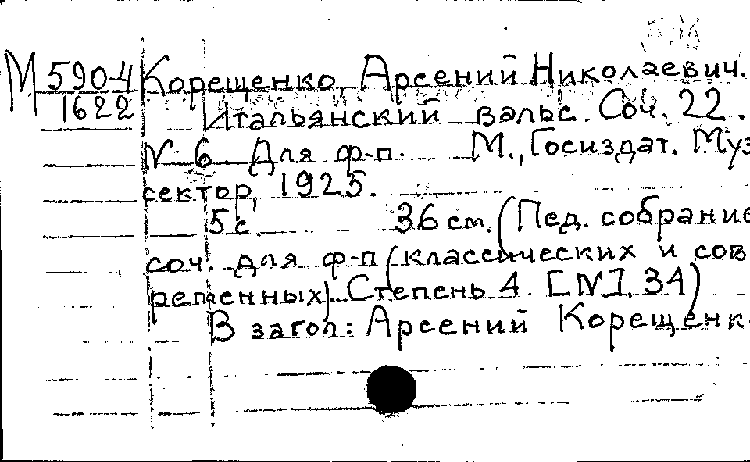 М 5904 Корещенко, Арсений Николаевич.
1622 Итальянский вальс. Соч. 22.
N 6 Для ф-п. М., Госиздат. Муз
сектор, 1925.
5 с. 36 см. (Пед. собрание
соч. для ф-п (классических и сов
ременных). Степень 4. [N] 34)
В загол: Арсений Корещенк